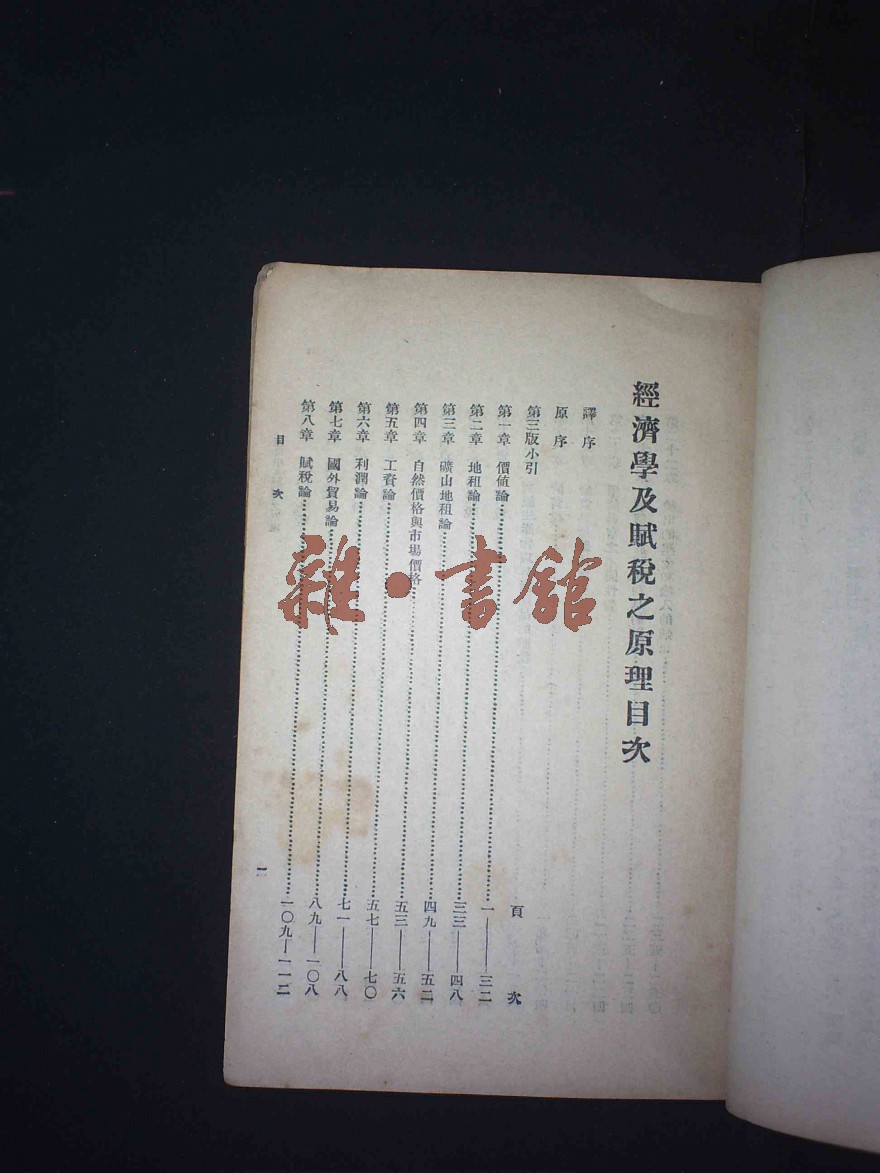 經濟學及賦稅之原理目次
譯序
原序
第三版小引
頁次
第一章 價值論⋯⋯一——三二
第二章 地租論⋯⋯三三——四八
第三章 礦山地租論⋯⋯四九——五二
第四章 自然價格與市場價格⋯⋯五三——五六
第五章 工資論⋯⋯五七——七〇
第六章 利潤論⋯⋯七一——八八
第七章 國外貿易論⋯⋯八九——一〇八
第八章 賦稅論⋯⋯一〇九——一一二
目次
一
雜·書館